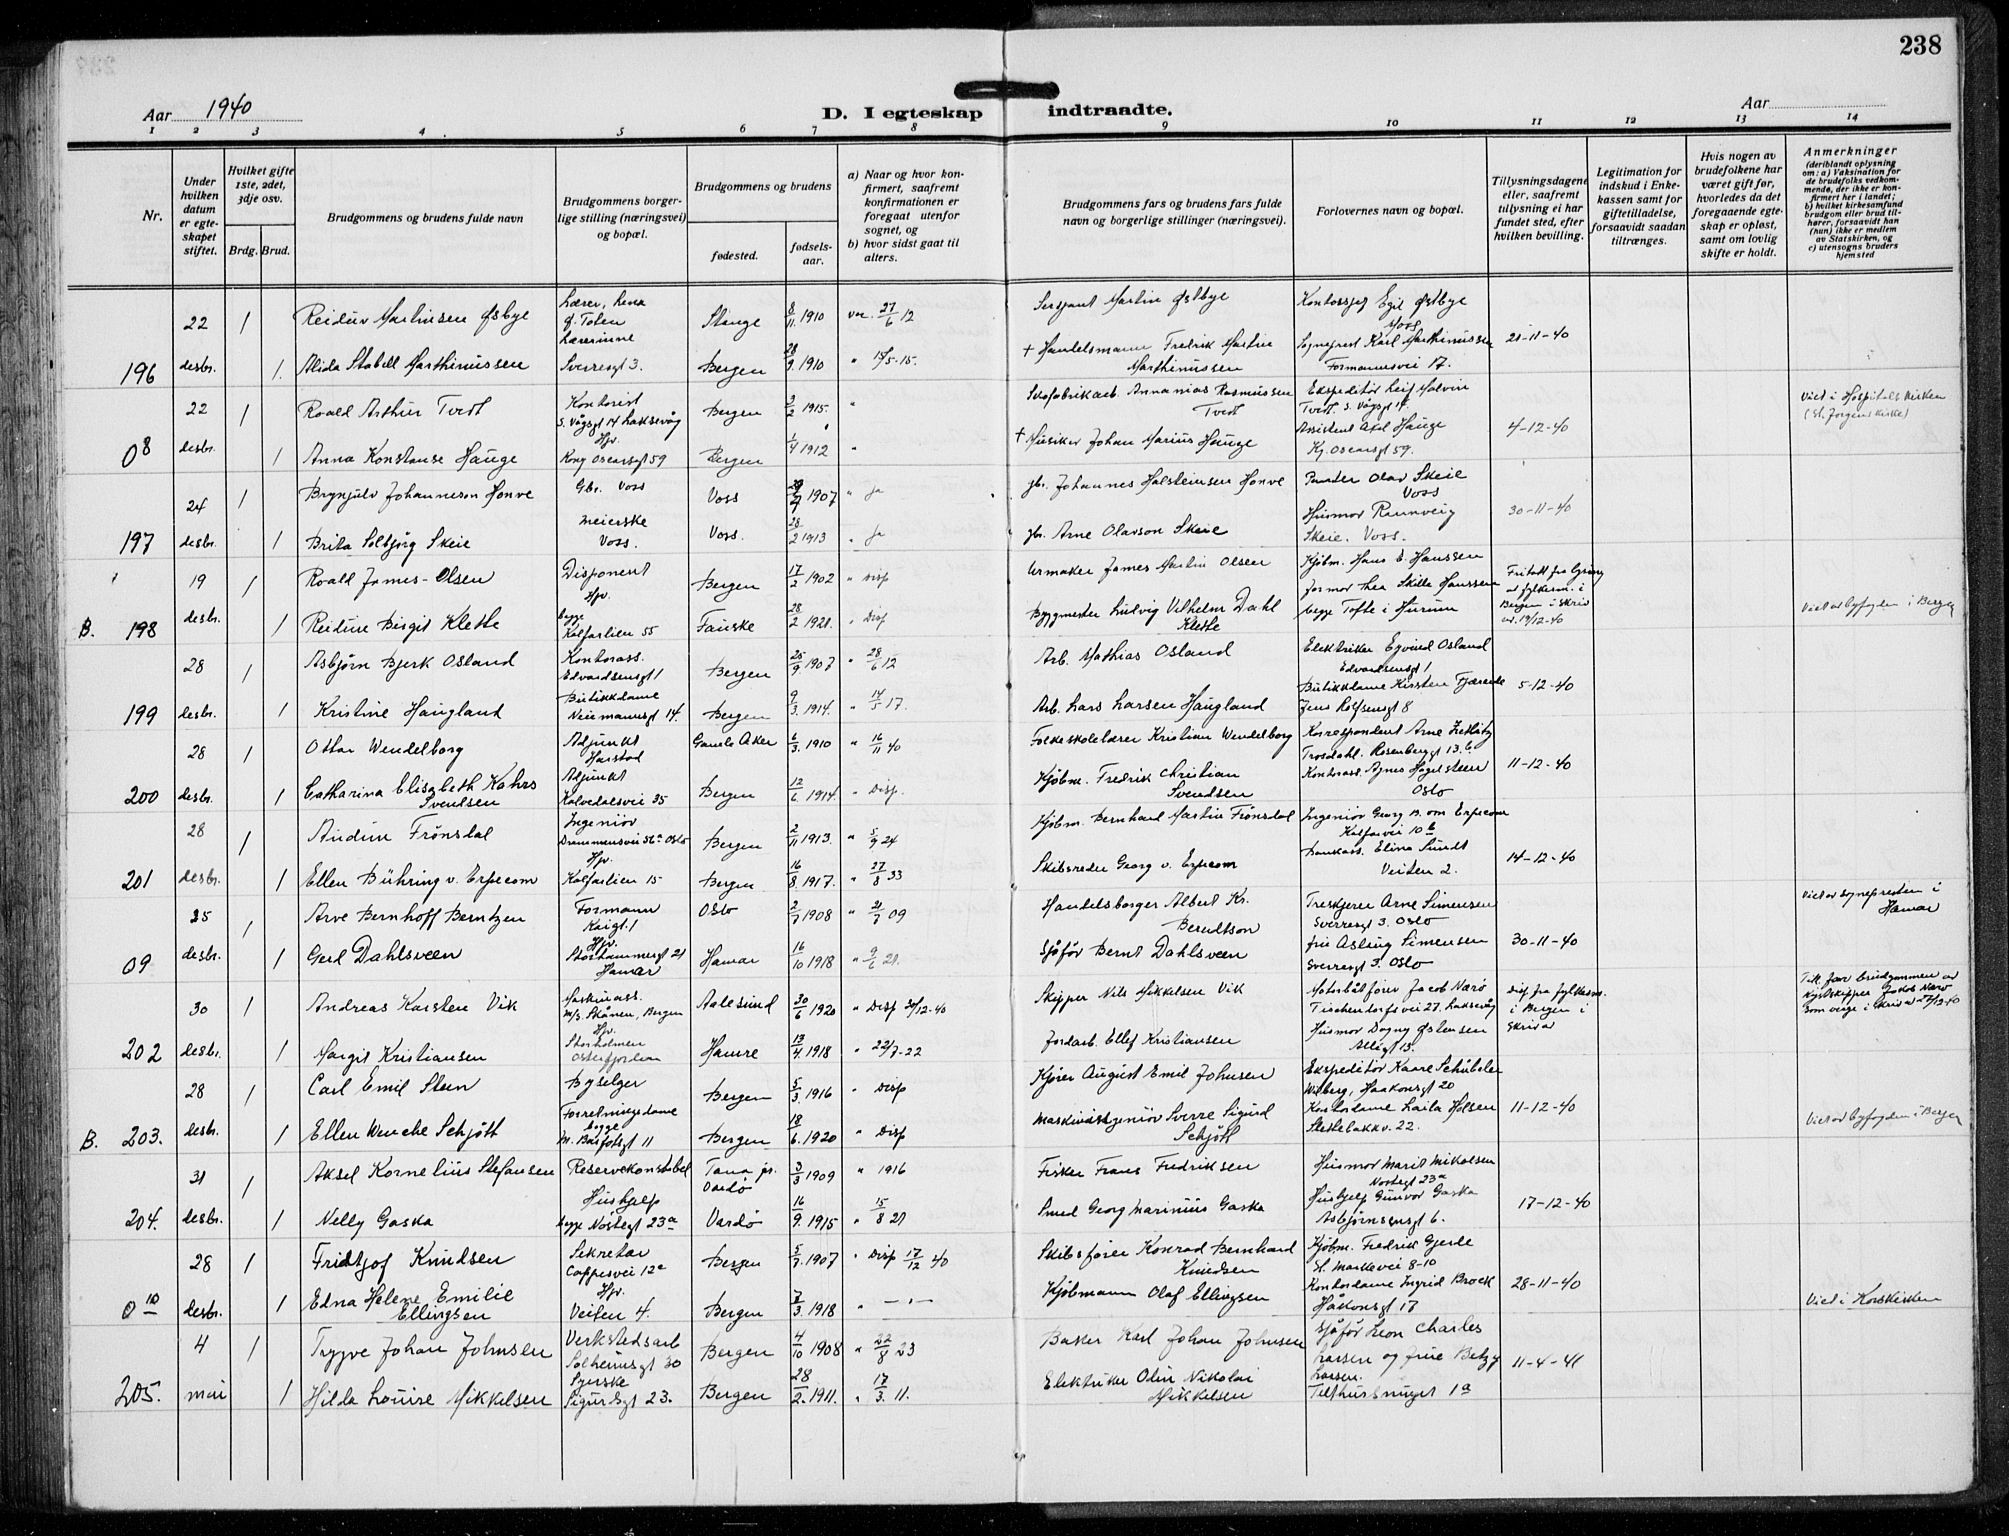 238
Aar 1940
D. I egteskap indtraadte.
Aar
1 2 3 4 5 6 7 8 9 10 11 12 13 14
Nr.
Under hvilken datum er egteskapet stiftet.
Hvilket gifte 1ste, 2det, 3dje osv.
Brdg. Brud.
Brudgommens og brudens fulde navn
Brudgommens borgerlige stilling (næringsvei) og bopæl.
Brudgommens og brudens
fødested.
fødselsaar.
a) Naar og hvor konfirmert, saafremt konfirmationen er foregaat utenfor sognet, og
b) hvor sidst gaat til alters.
Brudgommens fars og brudens fars fulde navn og borgerlige stillinger (næringsvei).
Forlovernes navn og bopæl.
Tillysningsdagene eller, saafremt tillysning ei har fundet sted, efter hvilken bevilling.
Legitimation for indskud i Enkekassen samt for giftetilladelse, forsaavidt saadan tiltrænges.
Hvis nogen av brudefolkene har været gift før, hvorledes da det foregaaende egteskap er opløst, samt om lovlig skifte er holdt.
Anmerkninger (deriblandt oplysning om: a) Vaksination for de brudefolks vedkommende, der ikke er konfirmert her i landet; b) hvilket kirkesamfund brudgom eller brud tilhører, forsaavidt han (hun) ikke er medlem av Statskirken, og c) utensogns bruders hjemsted
22 1 Reidur Martinsen Østbye Lærer, Lena Ø. Toten Stange 8/11 1910 27/6 12 Sersjant Martin Østbye Kontorsjef Egil Østbye Moss
196 desbr. 1. Alida Stabell Marthinussen Lærerinne Sverresgt 3. Bergen 28/9 1910 " 15/5-15. + Handelsmann Fredrik Martin Marthinussen Sogneprest Karl Marthinussen Formannsvei 17. 20-11-40
22 1 Roald Arthur Tvedt Kontorist S. Vågsgt 14 Laksevåg Bergen 3/2 1915. " Skofabrikarb. Annanias Rasmussen Tvedt Ekspeditør Leif Malvin Tvedt. S. Vågsgt 14. Viet i Hospitalskirken (St. Jørgens kirke)
08 desbr. 1 Anna Konstanse Hauge Hjv. Kong Oscarsgt 59 Bergen 1/4 1912 " + Musiker Johan Marius Hauge Assistent Axel Hauge Kg. Oscarsgt 59. 4-12-40
24 1 Brynjulv Johanneson Hønve Gbr. Voss Voss 1907 " ja gbr. Johannes Holsteinsen Hønve Olav Skeie Voss
197 desbr. 1 Brita Solbjørg Skeie Meierske Voss. Voss. 28/2 1913 " ja gbr. Arne Olavson Skeie Husmor Rannveig Skeie. Voss. 30-11-40
19 1 Roald James-Olsen Disponent Bergen 17/2 1902 " Disp Urmaker James Martin Olsen Kjøbm. Hans E. Hanssen
B. 198 desbr. 1 Reidun Birgit Klette Hjv. begge Kalfarlien 55 Fauske 28/2 1921. " Disp Byggmester Ludvig Vilhelm Dahl Klette Jormor Thea Skille Hanssen begge Tofte i Hurum Fritatt fra lysning av fylkesm. i Bergen i skriv av. 19/12-40 Viet av byfogden i Bergen
28 1 Asbjørn Bjerk Osland Kontorass. Edvardsensgt 1 Bergen 25/9 1907 " 28/6 12 Arb. Mathias Osland Elektriker Eyvind Osland Edvardsensgt 1
199 desbr. 1 Kristine Haugland Butikkdame Neumannsgt 14. Bergen 9/3. 1914. " 14/5 17. Arb. Lars Larsen Haugland Butikkdame Kirsten Fjærede Jens Rolfsensgt 8 5-12-40
28 1 Ottar Wendelborg Adjunkt Harstad Gamle Aker 6/3. 1910 " 16/11 40 Folkeskolelærer Kristian Wendelborg Korrespondent Arne Trosdahl. Rosenbergsgt 13b
200 desbr. 1 Catharina Elisabeth Kahrs Svendsen Adjunkt Kalvedalsvei 35 Bergen 12/6. 1914. " Disp. Kjøbm. Fredrik Christian Svendsen Kontorass. Agnes Hagelsteen Oslo 11-12-40
28 1 Audun Frønsdal Ingeniør Drammensvei 56a Oslo Bergen 2/11 1913. " 5/9 24 Kjøbm. Bernhard Martin Frønsdal Ingeniør Georg B. von Erpecom Kalfarvei 10b
201 desbr. 1 Ellen Bühring v. Erpecom Hjv. Kalfarlien 15 Bergen 16/8. 1917. " 27/8 33 Skibsreder Georg v. Erpecom Bankass. Elina Sundt Veiten 2. 14-12-40
25 1 Arve Bernhoff Berntzen Formann Kaigt. 1 Oslo 2/7 1908 " 21/7 09 Handelsborger Albert Kr. Berndtson Treskjerer Arne Simensen Sverresgt 3. Oslo Viet av sognepresten i Hamar
09 desbr. 1 Gerd Dahlsveen Hjv. Storhammersgt 21 Hamar Hamar 16/10 1918 " 9/6 21. Sjåfør Bernt Dahlsveen fru Aslaug Simensen Sverresgt 3. Oslo 30-11-40
30 1 Andreas Karsten Vik Maskinass. M/S. Skånen, Bergen Aalesund 30/6 1920 " Disp 30/12-40 Skipper Nils Mikkelsen Vik Motorbåtfører Jacob Nærø Tischendorfsvei 27. Laksevåg Disp. fra fylkesm. i Bergen i skriv av Till. for brudgommen av Kystskipper Jakob Nærø som verge i skriv av 27/12-40
202 desbr. 1 Margit Kristiansen Hjv. Storholmen Osterfjorden Hamre 13/4. 1918 " 22/7-22 Jordarb. Ellef Kristiansen Husmor Dagny Østensen Allégt 13.
28 1 Carl Emil Stein Byselger Bergen 5/3. 1916 " Disp Kjører August Emil Johnsen Ekspeditør Kaare Schübeler Wiberg, Haakonsgt 20
B. 203. desbr. 1 Ellen Wenche Schjøtt Forretningsdame begge M. Barfotsgt 11 Bergen 18/6. 1920 " Disp Maskiningeniør Sverre Sigurd Schjøtt Kontordame Laila Holsen Slettebakkv. 22. 11-12-40 Viet av byfogden i Bergen
31 1 Aksel Kornelius Stefansen Reservekonstabel Tana pr. Vardø 3/3 1909 " 1916 Fisker Frans Fredriksen Husmor Marit Mikalsen Nøstegt 23a
204. desbr. 1 Nelly Gaska Hushjelp begge Nøstegt 23a Vardø 16/9. 1915 " 15/8 21 Smed Georg Marinius Gaska Hushjelp Gunvor Gaska Asbjørnsensgt 6. 17-12-40
28 1 Fridtjof Knudsen Sekretær Cappesvei 12a Bergen 5/7. 1907 " Disp 17/12 40 Skibsfører Konrad Bernhard Knudsen Kjøbm. Fredrik Gjerde St. Markevei 8-10
010 desbr. 1 Edna Helene Emilie Ellingsen Hjv. Veiten 4. Bergen 7/3. 1918 " —"— Kjøbmann Olaf Ellingsen Kontordame Ingrid Brock Håkonsgt 17 28-11-40 Viet i Korskirken
4 1 Trygve Johan Johnsen Verkstedsarb Solheimsgt 30 Bergen 4/10 1908 " 22/8 23 Baker Karl Johan Johnsen Sjåfør Leon Charles Larsen og frue Betzy Larsen. Tellhusmuget 1a 11-4-41
205. mai 1 Hilda Louise Mikkelsen Syerske Sigurdsgt 23. Bergen 28/2. 1911. " 17/3. 11. Elektriker Olin Nikolai Mikkelsen